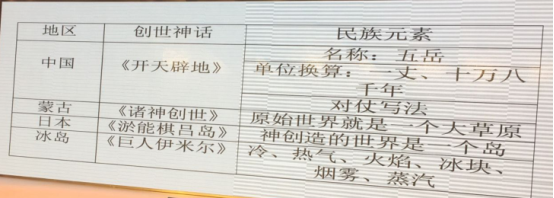 地区 创世神话 民族元素
中国 《开天辟地》 名称：五岳
单位换算：一丈、十万八
千年
对仗写法
蒙古 《诸神创世》 原始世界就是一个大草原
日本 《淤能棋吕岛》 神创造的世界是一个岛
冰岛 《巨人伊米尔》 冷、热气、火焰、冰块、
烟雾、蒸汽